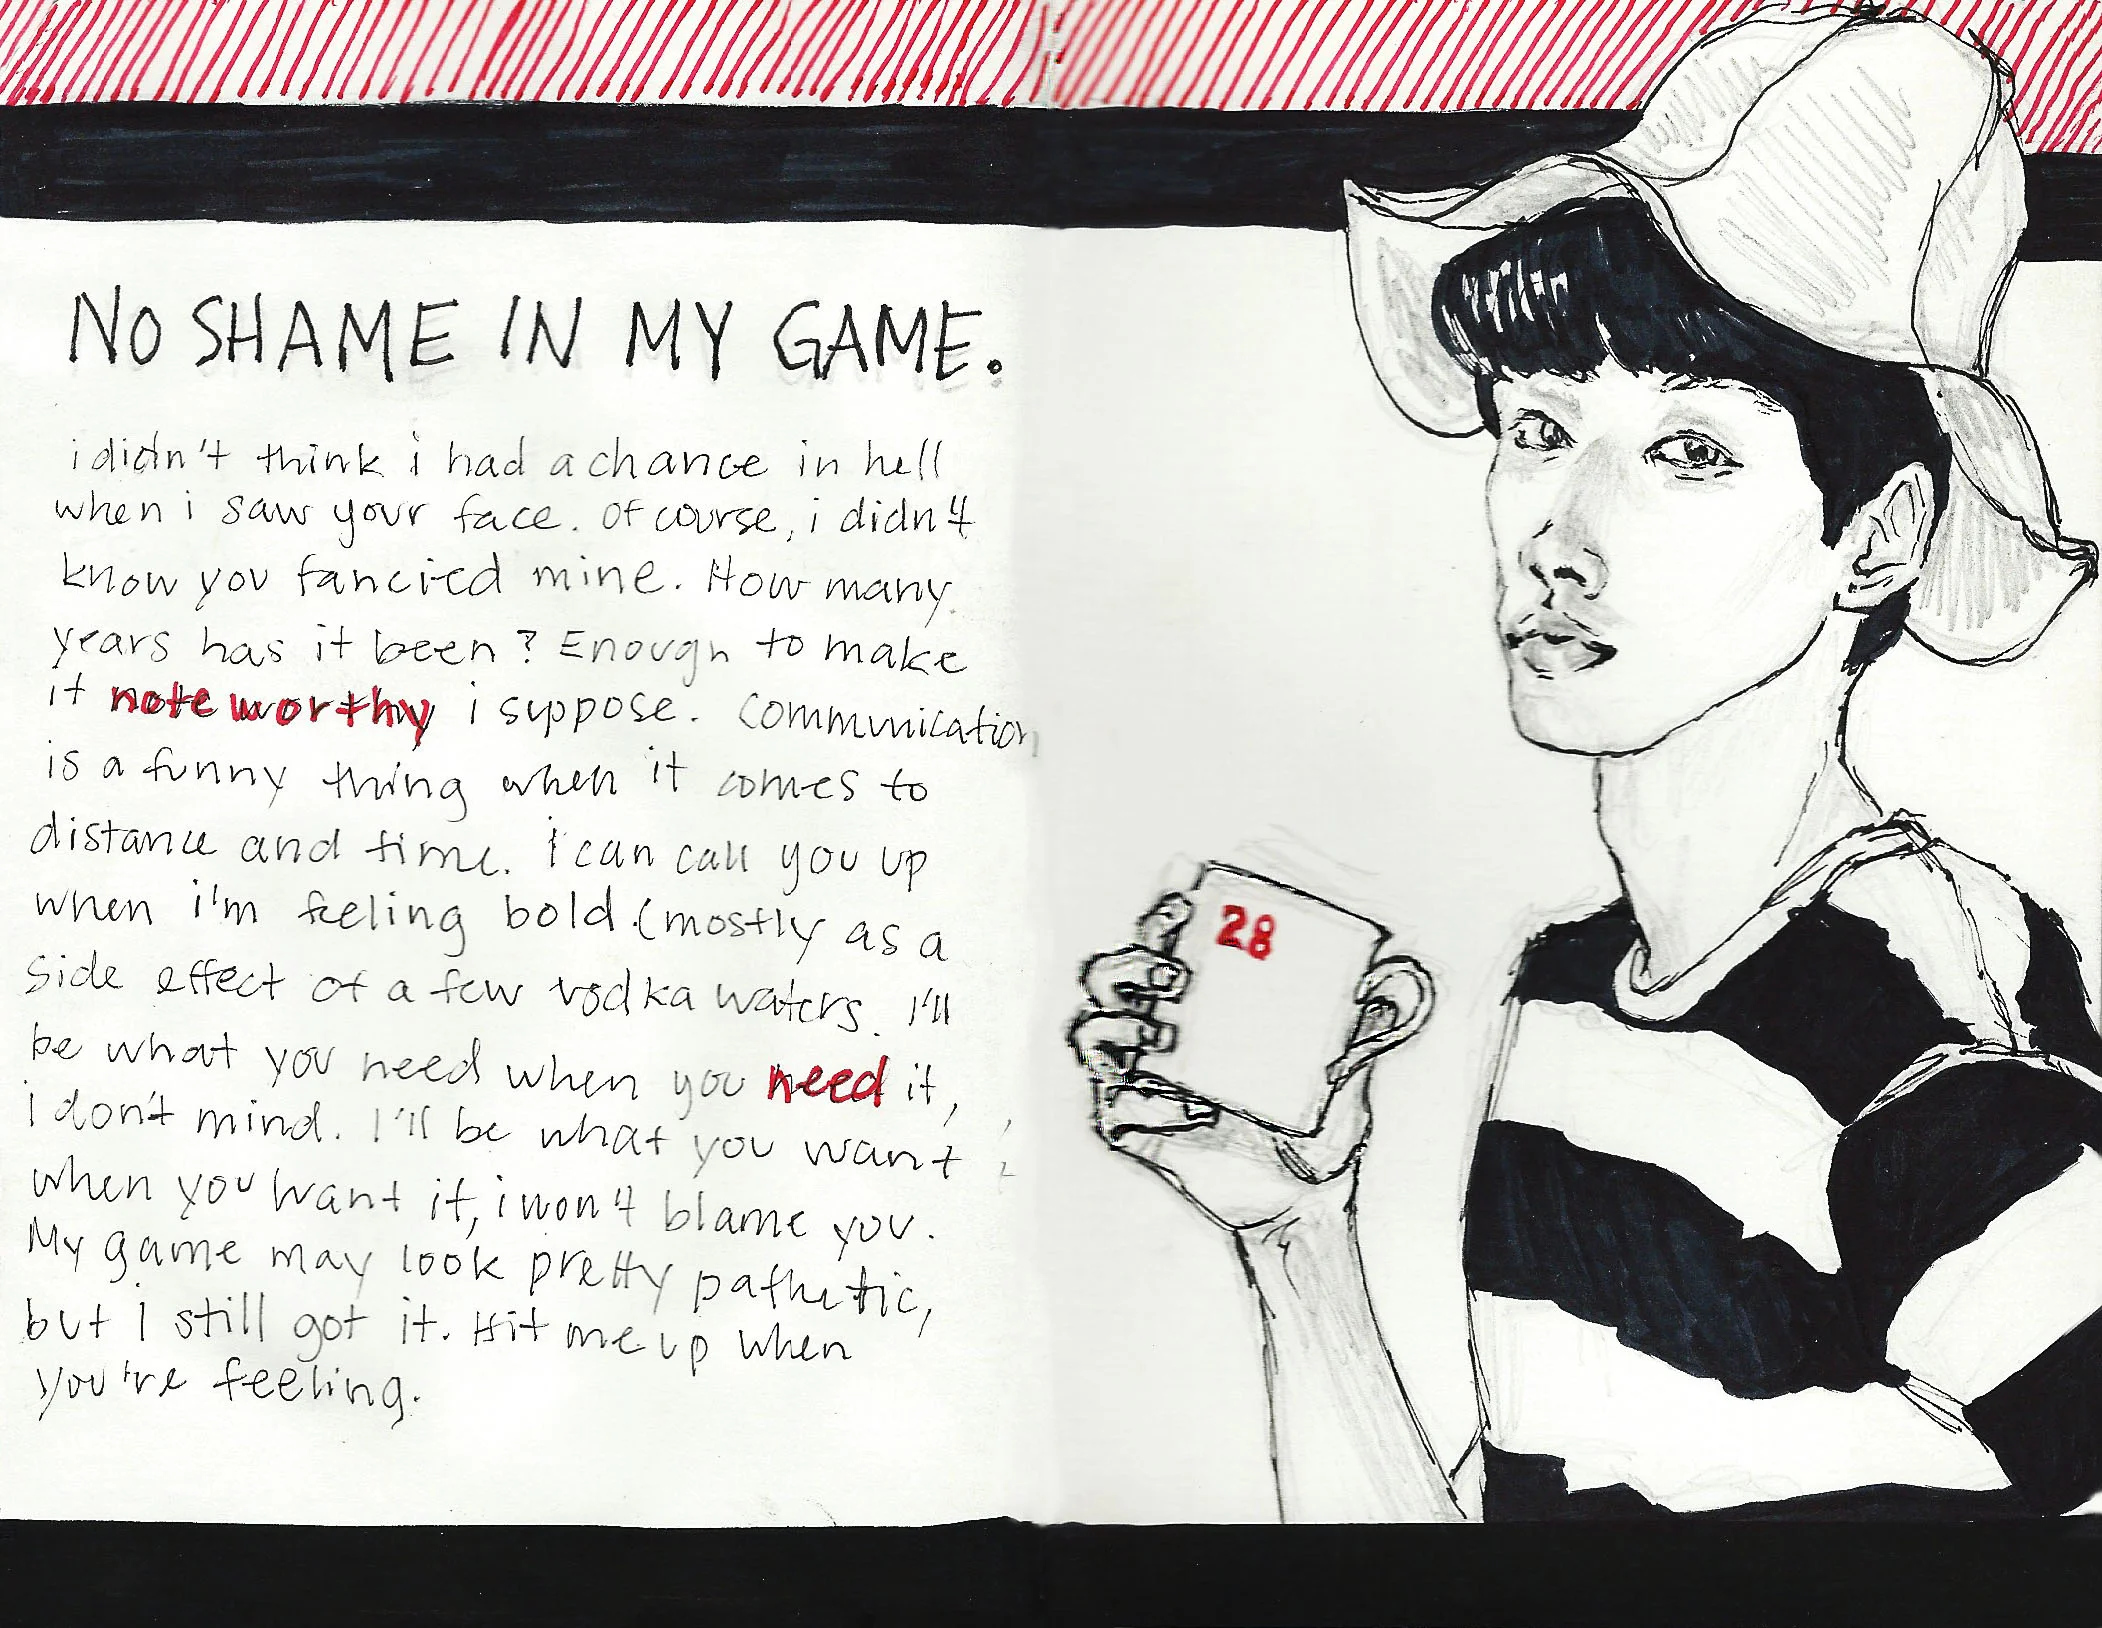 NO SHAME IN MY GAME.
i didn't think i had a chance in hell
when i saw your face. Of course, i didn't
know you fancied mine. How many
years has it been? Enough to make
it noteworthy i suppose. Communication
is a funny thing when it comes to
distance and time. i can call you up
when i'm feeling bold (mostly as a
side effect of a few vodka waters. I'll
be what you need when you need it,
i don't mind. I'll be what you want
when you want it, i won't blame you.
My game may look pretty pathetic,
but i still got it. Hit me up when
you're feeling.
28